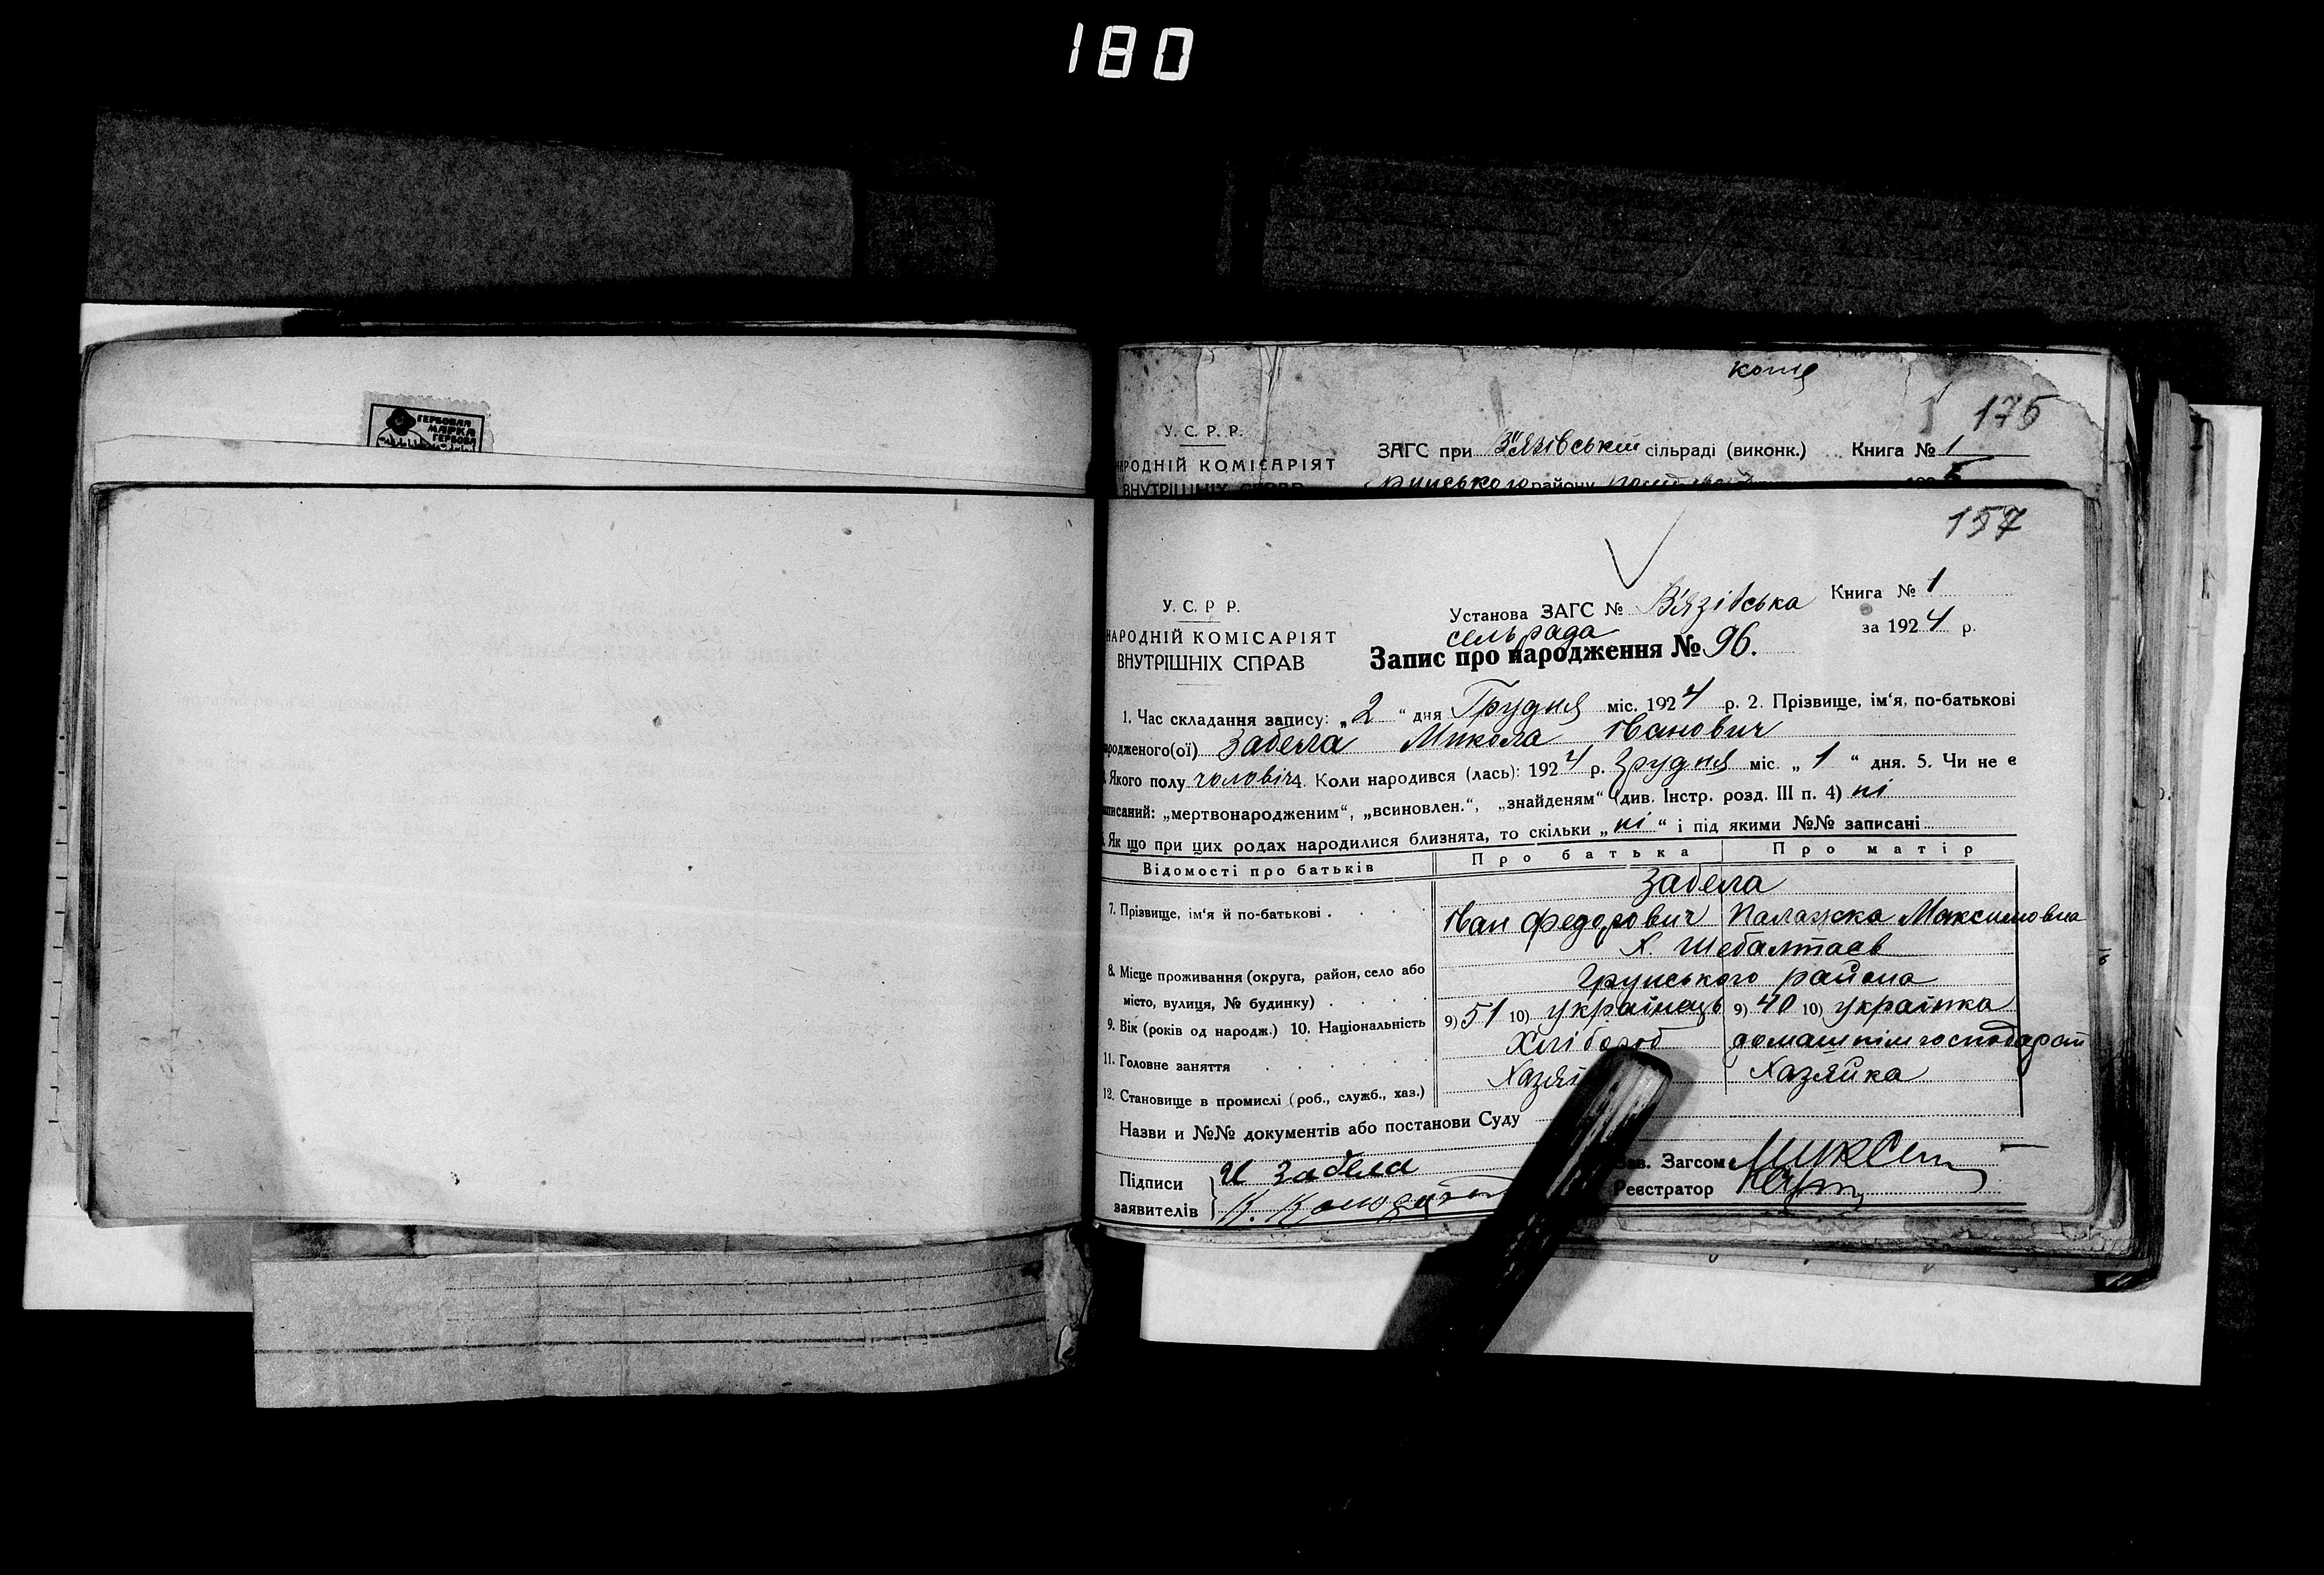 180
ГЕРБОВАЯ
МАРКА
ГЕРБОВА
копія
175
У. С. Р. Р.
НАРОДНІЙ КОМІСАРІЯТ
ВНУТРІШНІХ СПРАВ
ЗАГС при В'язівськім сільраді (виконк.) Книга № 1
Грунського району
157
У. С. Р Р.
НАРОДНІЙ КОМІСАРІЯТ
ВНУТРІШНІХ СПРАВ
Установа ЗАГС № В'язівська Книга № 1
сельрада за 1924 р.
Запис про народження № 96.
1. Час складання запису: „2“ дня Грудня міс. 1924 р. 2. Прізвище, ім'я, по-батькові
родженого(ої) Забела Микола Іванович
Якого полу чоловіч 4. Коли народився (лась): 1924 р. Грудня міс. „1“ дня. 5. Чи не є
записаний: „мертвонародженим“, „всиновлен.“, „знайденям“ (див. Інстр. розд. III п. 4) ні
Як що при цих родах народилися близнята, то скільки „ні“ і під якими №№ записані
Відомості про батьків Про батька Про матір
Забела
7. Прізвище, ім'я й по-батькові Іван Федорович Палажка Максимовна
Х. Шебалтаєв
8. Місце проживання (округа, район, село або
місто, вулиця, № будинку) Грунського района
9. Вік (років од народж.) 10. Національність 9) 51 10) українець 9) 40 10) українка
11. Головне заняття Хлібороб домашнім господарст
12. Становище в промислі (роб., служб., хаз.) Хазяї Хазяйка
Назви и №№ документів або постанови Суду
Підписи И Забела Зав. Загсом
заявителів К. Реєстратор